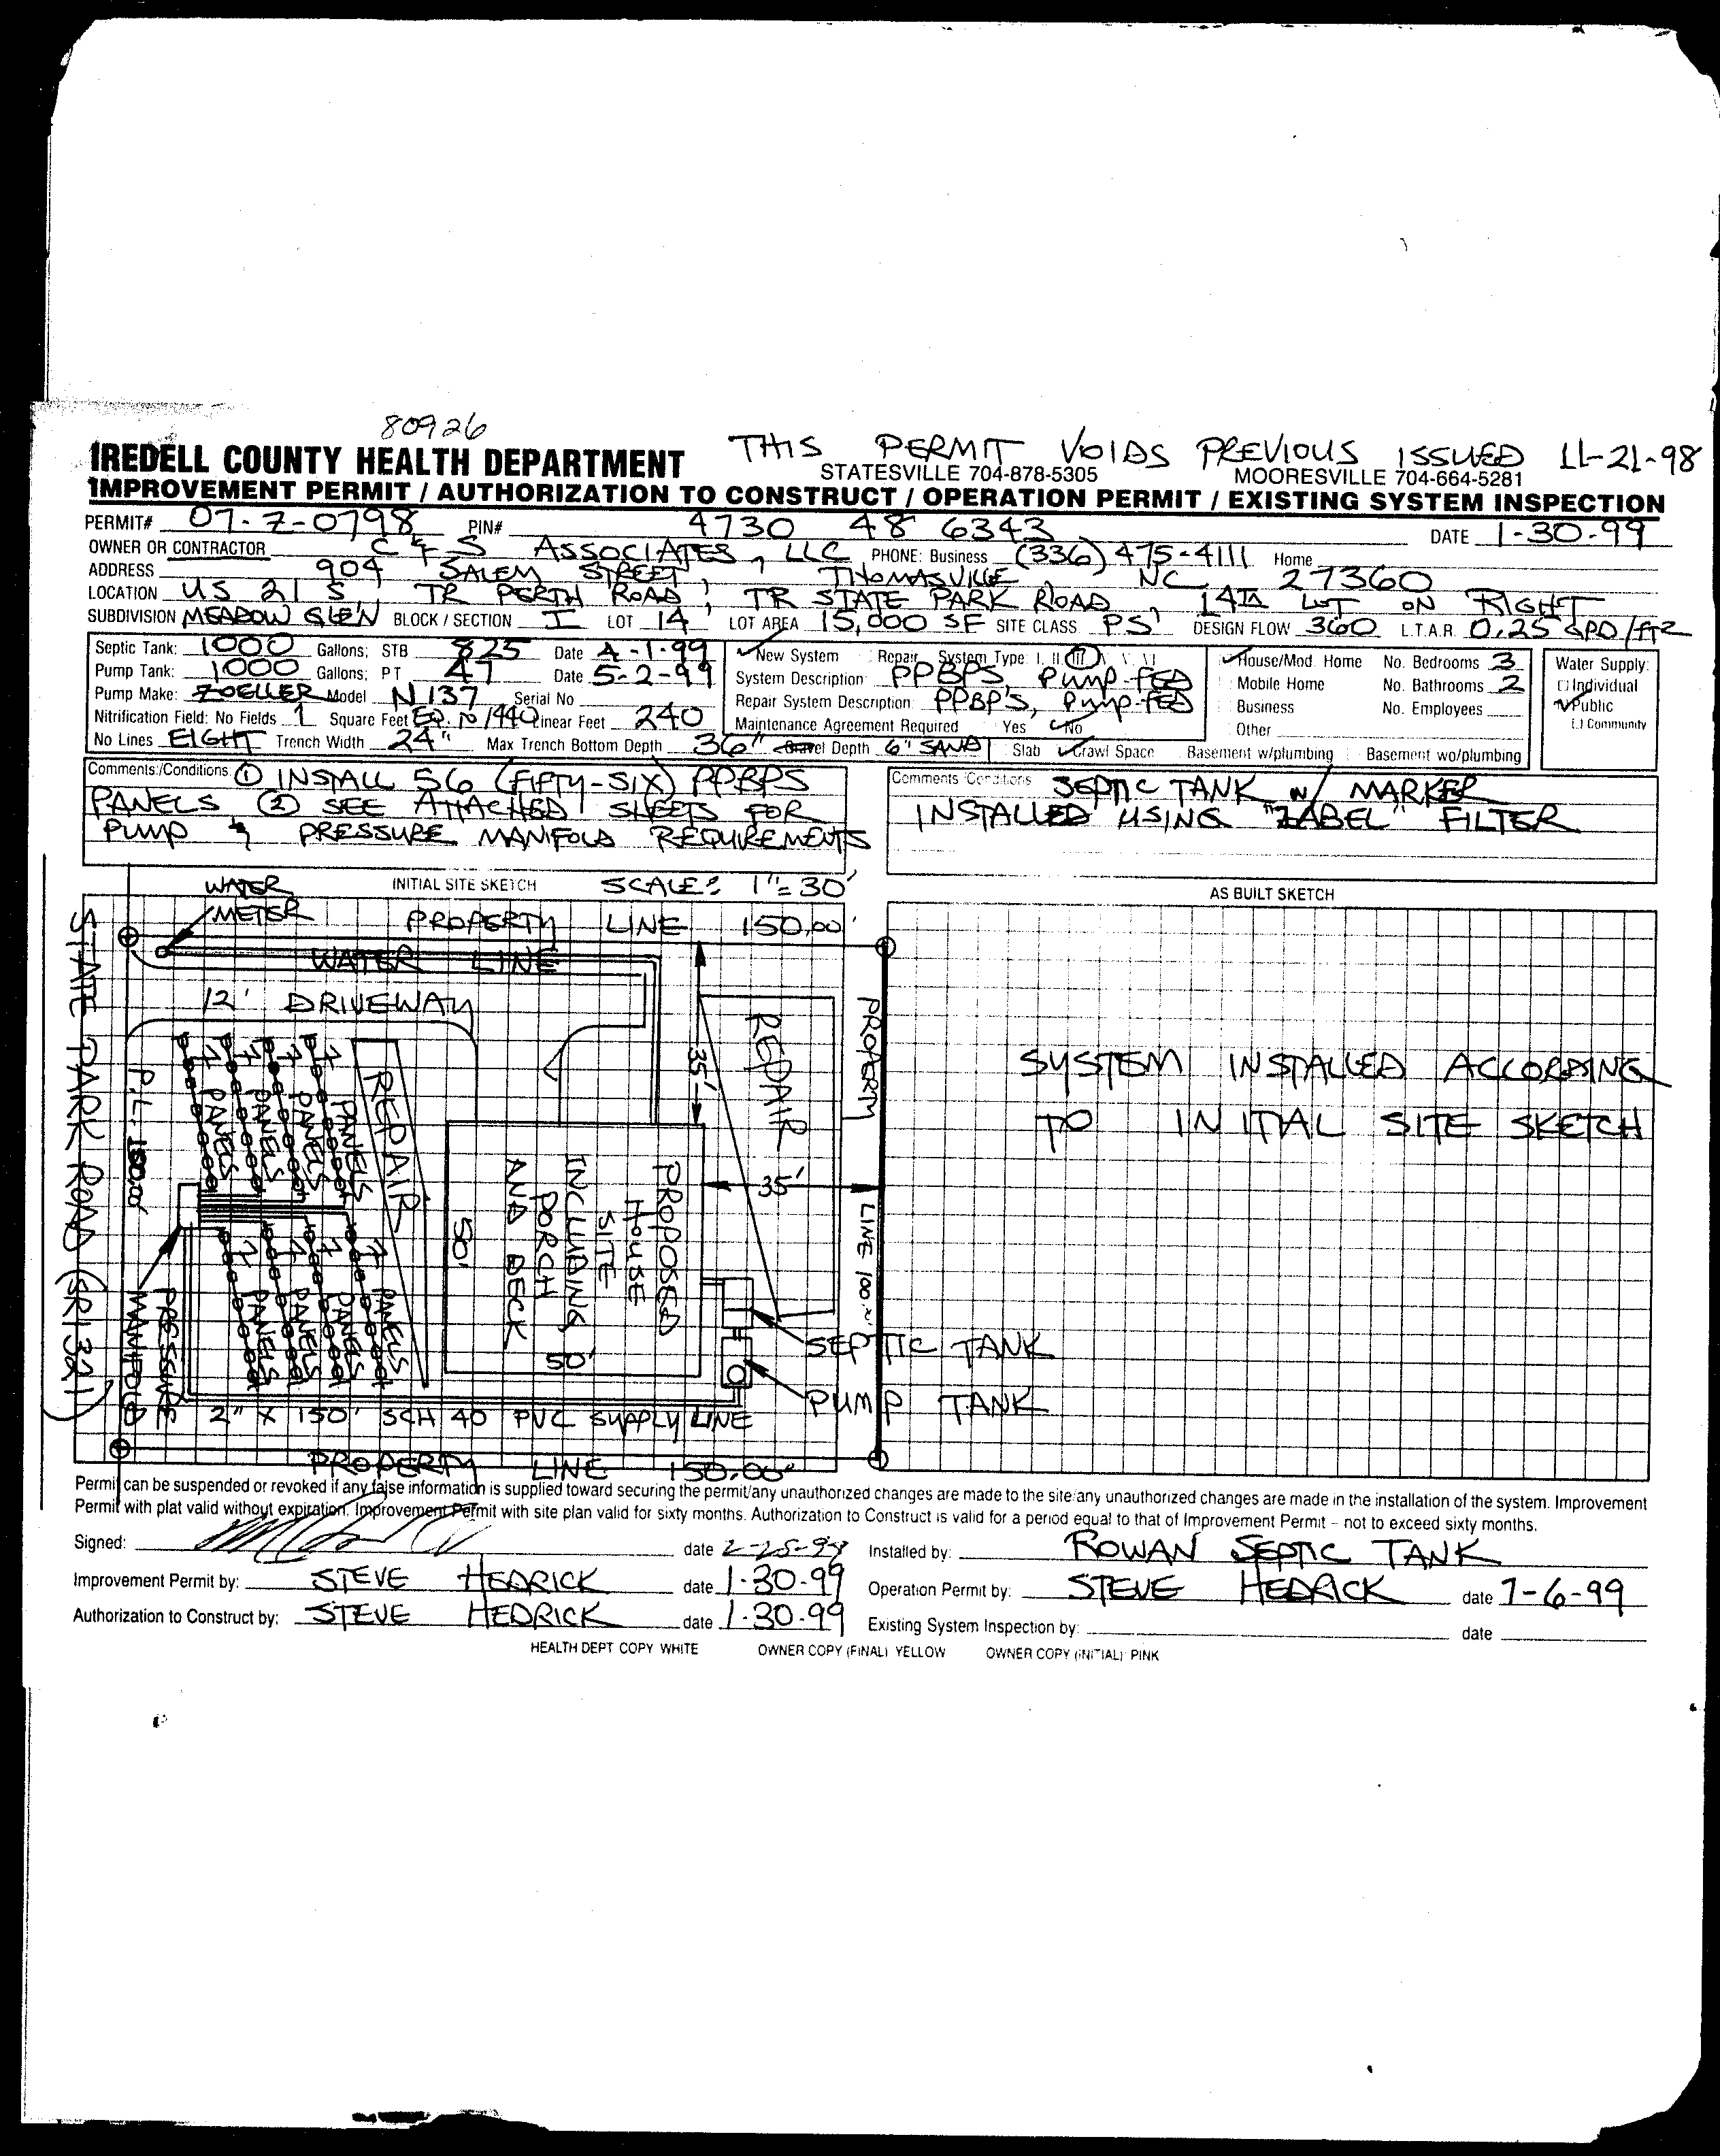 80926
THIS PERMIT VOIDS PREVIOUS ISSUED 11-21-98
IREDELL COUNTY HEALTH DEPARTMENT
STATESVILLE 704-878-5305 MOORESVILLE 704-664-5281
IMPROVEMENT PERMIT / AUTHORIZATION TO CONSTRUCT / OPERATION PERMIT / EXISTING SYSTEM INSPECTION
PERMIT# 07-Z-0798 PIN# 4730 48 6343 DATE 1-30-99
OWNER OR CONTRACTOR C & S ASSOCIATES, LLC PHONE: Business (336) 475-4111 Home
ADDRESS 904 SALEM STREET, THOMASVILLE, NC 27360
LOCATION US 21 S, TR PERTH ROAD, TR STATE PARK ROAD, 14TH LOT ON RIGHT
SUBDIVISION MEADOW GLEN BLOCK / SECTION I LOT 14 LOT AREA 15,000 SF SITE CLASS PS DESIGN FLOW 360 L.T.A.R. 0.25 GPD/FT2
Septic Tank: 1000 Gallons; STB 825 Date 4-1-99
Pump Tank: 1000 Gallons; PT 47 Date 5-2-99
Pump Make: ZOELLER Model N137 Serial No
Nitrification Field: No Fields 1 Square Feet EQ. TO 1440 Linear Feet 240
No Lines EIGHT Trench Width 24" Max Trench Bottom Depth 36" Gravel Depth 6" SAND
New System Repair System Type: I, II, III, IV, V, VI
System Description PPBPS, PUMP-FED
Repair System Description: PPBP'S, PUMP-FED
Maintenance Agreement Required Yes No
Slab Crawl Space Basement w/plumbing Basement wo/plumbing
House/Mod. Home No. Bedrooms 3
Mobile Home No. Bathrooms 2
Business No. Employees
Other
Water Supply:
Individual
Public
Community
Comments/Conditions: ① INSTALL 56 (FIFTY-SIX) PPBPS
PANELS ② SEE ATTACHED SHEETS FOR
PUMP & PRESSURE MANIFOLD REQUIREMENTS
Comments Conditions SEPTIC TANK W/ MARKER
INSTALLED USING "ZABEL" FILTER
INITIAL SITE SKETCH SCALE: 1"=30'
AS BUILT SKETCH
WATER
METER
PROPERTY LINE 150.00'
WATER LINE
12' DRIVEWAY
STATE PARK ROAD (SR1321)
P.L. 100.00'
7 PANELS
7 PANELS
7 PANELS
7 PANELS
REPAIR
35'
REPAIR
PROPERTY LINE 100.00'
35'
PROPOSED
HOUSE
SITE
INCLUDING
PORCH
AND DECK
50'
50'
7 PANELS
7 PANELS
7 PANELS
7 PANELS
PRESSURE
MANIFOLD
SEPTIC TANK
PUMP TANK
2" X 150' SCH 40 PVC SUPPLY LINE
PROPERTY LINE 150.00'
SYSTEM INSTALLED ACCORDING
TO INITIAL SITE SKETCH
Permit can be suspended or revoked if any false information is supplied toward securing the permit/any unauthorized changes are made to the site/any unauthorized changes are made in the installation of the system. Improvement
Permit with plat valid without expiration. Improvement Permit with site plan valid for sixty months. Authorization to Construct is valid for a period equal to that of Improvement Permit – not to exceed sixty months.
Signed: date 2-25-98 Installed by: ROWAN SEPTIC TANK
Improvement Permit by: STEVE HEDRICK date 1-30-99 Operation Permit by: STEVE HEDRICK date 7-6-99
Authorization to Construct by: STEVE HEDRICK date 1-30-99 Existing System Inspection by: date
HEALTH DEPT COPY WHITE OWNER COPY (FINAL) YELLOW OWNER COPY (INITIAL) PINK